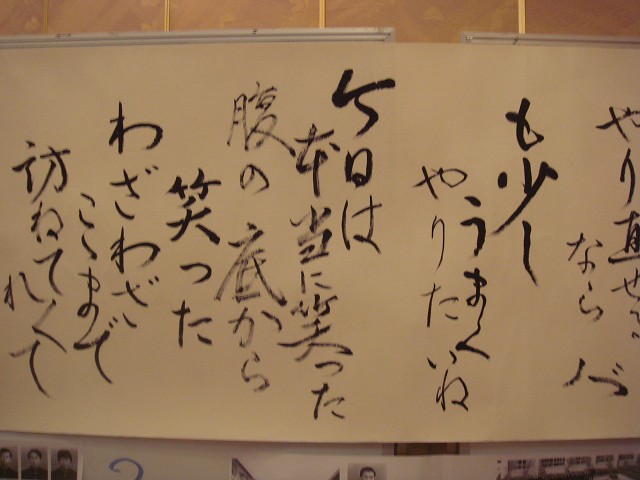 やり直せる
ならバ
も少し
うまく
やりたいね
今日は
本当に笑った
腹の底から
笑った
わざわざ
ここまで
訪ねてくれて